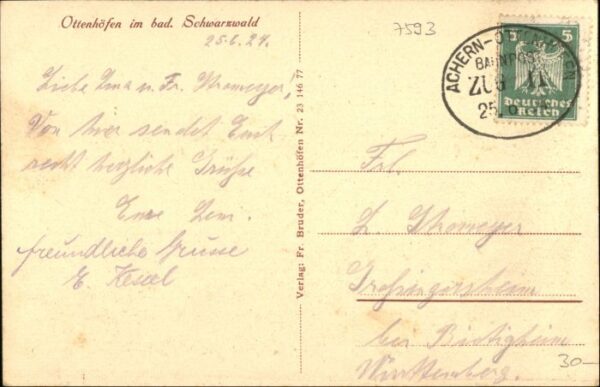 Ottenhöfen im bad. Schwarzwald
25.6.27.
7593
Liebe Lina u. Fr. Stromeyer!
Von hier sendet Euch
recht herzliche Grüße
Eure
freundliche Grüsse
E.
Verlag: Fr. Bruder, Ottenhöfen Nr. 23 146 77
ACHERN-OTTENHÖFEN
BAHNPOST
ZUG
25.6
5 5
Deutsches
Reich
Frl.
L. Stromeyer
Großingersheim
bei Bietigheim
Württemberg.
30-